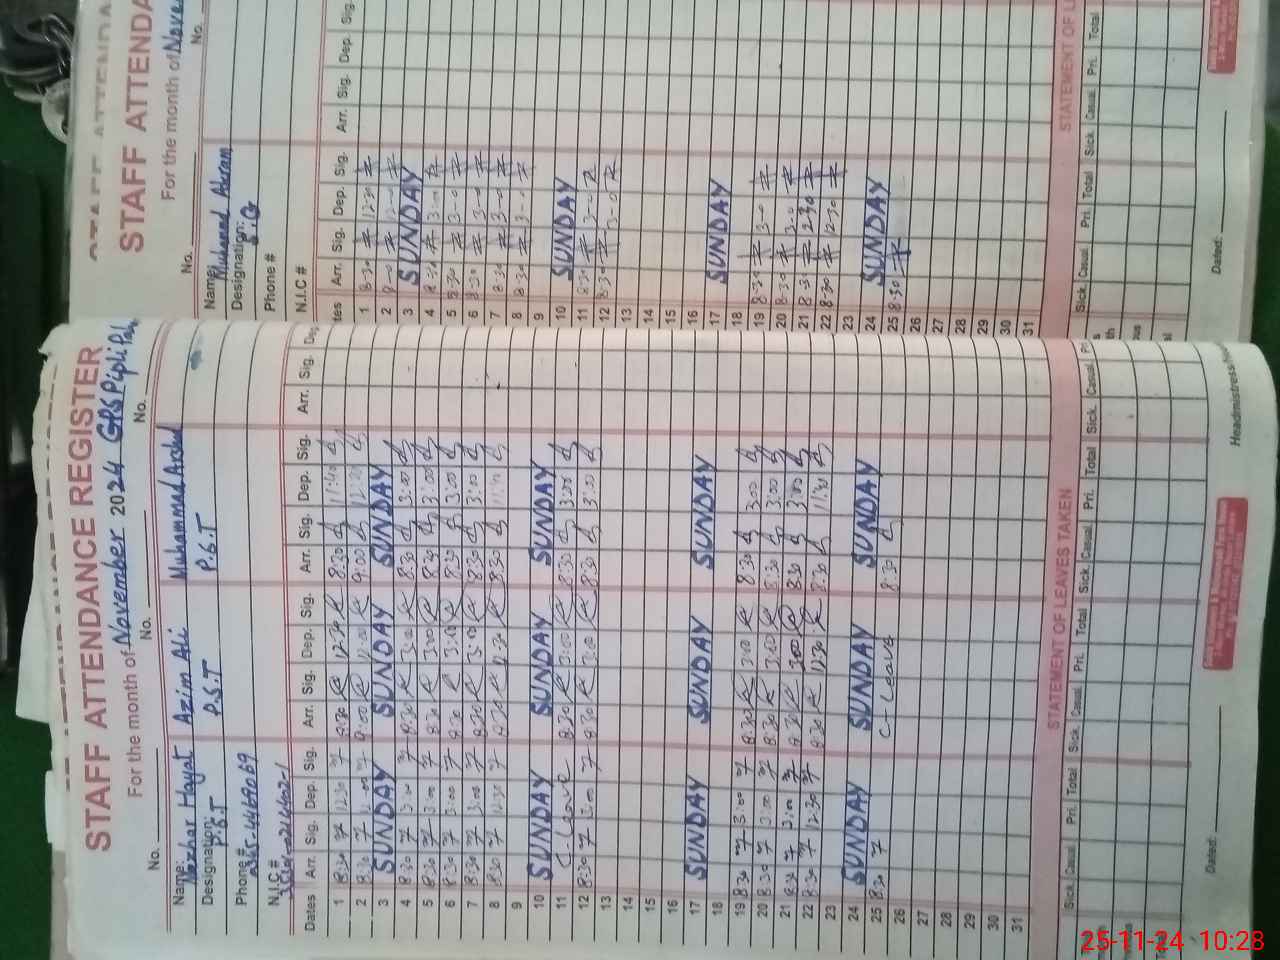 STAFF ATTENDANCE REGISTER
For the month of November 2024 GPS Pipli
No. No. No.
Name: Mazhar Hayat Azim Ali Muhammad Arshad
Designation: P.S.T P.S.T P.S.T
Phone #
N.I.C #
Dates Arr. Sig. Dep. Sig. Arr. Sig. Dep. Sig. Arr. Sig. Dep. Sig. Arr. Sig.
1 8:30 12:30 8:30 12:30 8:30 11:40
2 8:30 12:00 9:00 12:00 9:00 12:00
3 SUNDAY SUNDAY SUNDAY
4 8:30 3:00 8:30 3:00 8:30 3:00
5 8:30 3:00 8:30 3:00 8:30 3:00
6 8:30 3:00 8:30 3:00 8:30 3:00
7 8:30 3:00 8:30 3:00 8:30 3:00
8 8:30 12:30 8:30 12:30 8:30
9
10 SUNDAY SUNDAY SUNDAY
11 C-Leave 8:30 3:00 8:30 3:00
12 8:30 3:00 8:30 3:00 8:30 3:00
13
14
15
16
17 SUNDAY SUNDAY SUNDAY
18
19 8:30 3:00 8:30 3:00 8:30 3:00
20 8:30 3:00 8:30 3:00 8:30 3:00
21 8:30 3:00 8:30 3:00 8:30 3:00
22 8:30 12:30 8:30 12:30 8:30 11:30
23
24 SUNDAY SUNDAY SUNDAY
25 8:30 C-Leave 8:30
26
27
28
29
30
31
STATEMENT OF LEAVES TAKEN
Sick. Casual. Pri. Total Sick. Casual. Pri. Total Sick. Casual. Pri. Total Sick. Casual.
Dated:
STAFF ATTENDA
For the month of Nove
No. No.
Name: Muhammad Akram
Designation: S.G
Phone #
N.I.C #
Arr. Sig. Dep. Sig. Arr. Sig. Dep. Sig.
1 8:30 12:30
2 12:00
3 SUNDAY
4 8:30 3-0
5 8:30 3-0
6 8:30 3-0
7 8:30 3-0
8 8:30 3-0
9
10 SUNDAY
11 8:30 3-0
12 8:30 3-0
13
14
15
16
17 SUNDAY
18
19 8:30 3-0
20 8:30 3-0
21 8:30 2:30
22 8:30 12:30
23
24 SUNDAY
25 8:30
26
27
28
29
30
31
STATEMENT OF L
Sick. Casual. Pri. Total Sick Casual. Pri. Total
Dated:
25-11-24 10:28